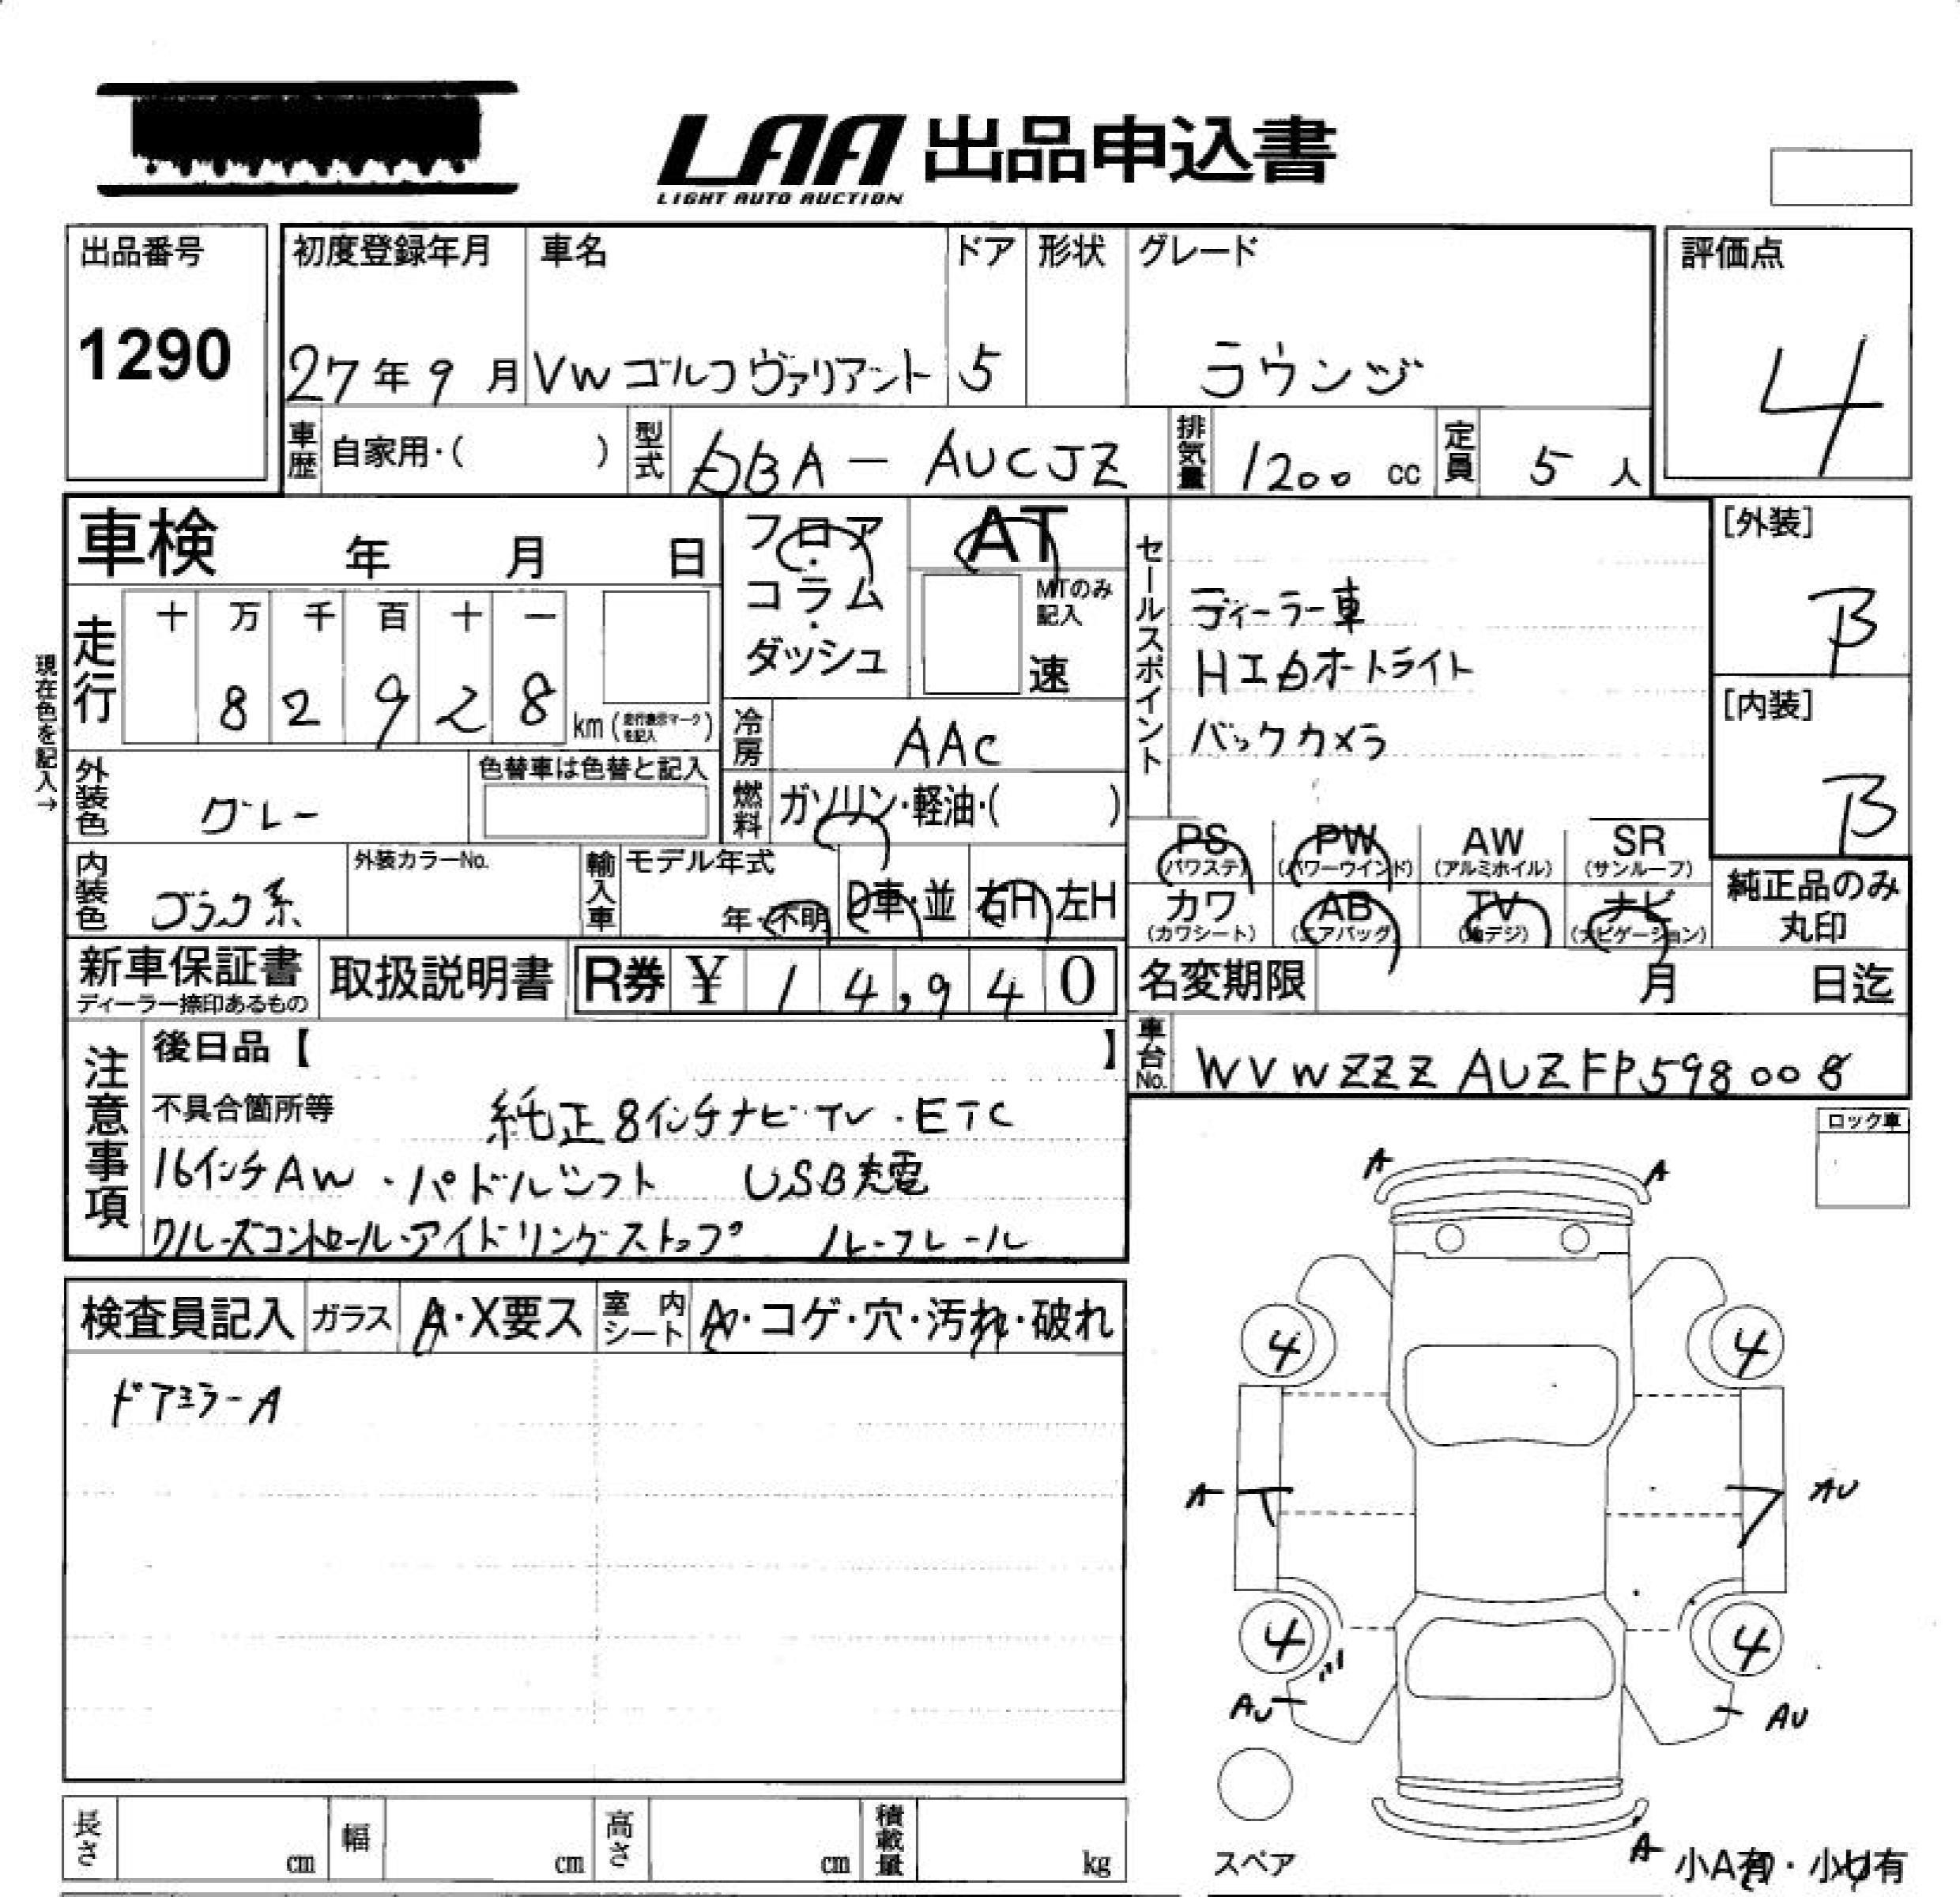 LAA 出品申込書
LIGHT AUTO AUCTION
出品番号
1290
初度登録年月 車名 ドア 形状 グレード
27年9月 VWゴルフヴァリアント 5 ラウンジ
評価点
4
車歴 自家用・( ) 型式 DBA-AUCJZ 排気量 1200 cc 定員 5 人
車検 年 月 日
フロア・コラム・ダッシュ
AT
MTのみ記入
速
現在色を記入→
走行 十 万 千 百 十 一
8 2 9 2 8 km (走行表示マークを記入)
冷房 AAC
燃料 ガソリン・軽油・( )
外装色 グレー 色替車は色替と記入
内装色 ブラック系 外装カラーNo. 輸入車 モデル年式
年・不明 D車・並 右H 左H
セールスポイント
ディーラー車
HIDオートライト
バックカメラ
[外装]
B
[内装]
B
PS (パワステ) PW (パワーウインド) AW (アルミホイル) SR (サンルーフ)
カワ (カワシート) AB (エアバッグ) TV (地デジ) ナビ (ナビゲーション)
純正品のみ丸印
新車保証書 ディーラー捺印あるもの 取扱説明書 R券 ¥ 14,940
名変期限 月 日迄
車台No. WVWZZZAUZFP598008
注意事項
後日品【 】
不具合箇所等 純正8インチナビ・TV・ETC
16インチAW・パドルシフト USB充電
クルーズコントロール・アイドリングストップ ルーフレール
ロック車
検査員記入 ガラス A・X要ス 室内シート A・コゲ・穴・汚れ・破れ
ドアミラーA
A A
4 4
A AU
4 4
AU AU
スペア
A 小A有・小U有
長さ cm 幅 cm 高さ cm 積載量 kg